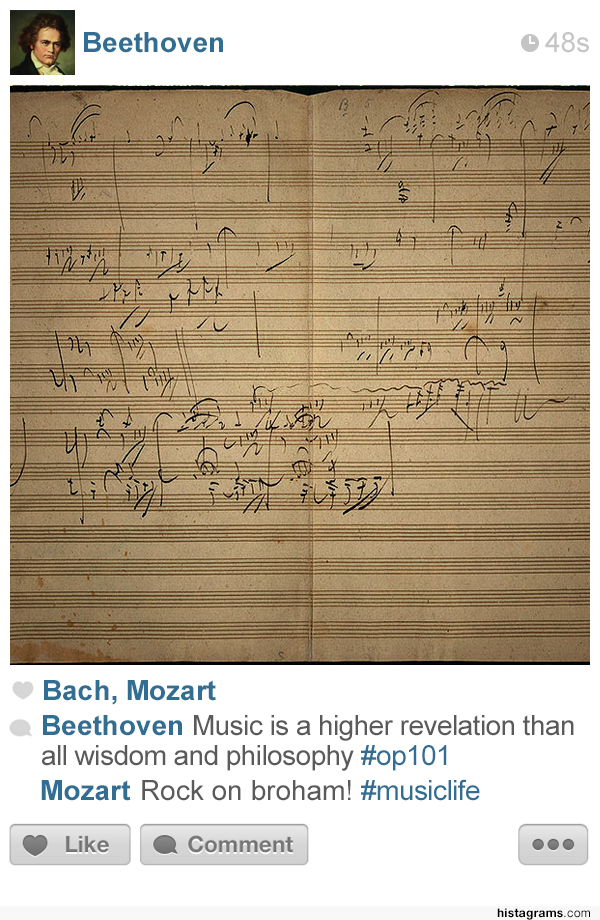 Beethoven 48s
Bach, Mozart
Beethoven Music is a higher revelation than
all wisdom and philosophy #op101
Mozart Rock on broham! #musiclife
Like Comment
histagrams.com